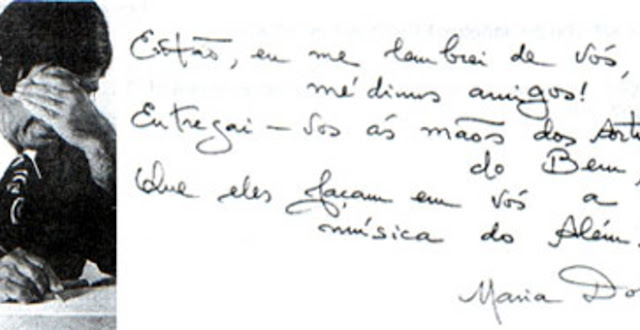 Então, eu me lembrei de vós,
médiuns amigos!
Entregai-vos às mãos dos
do Bem,
Que eles façam em vós a
música do Além.
Maria